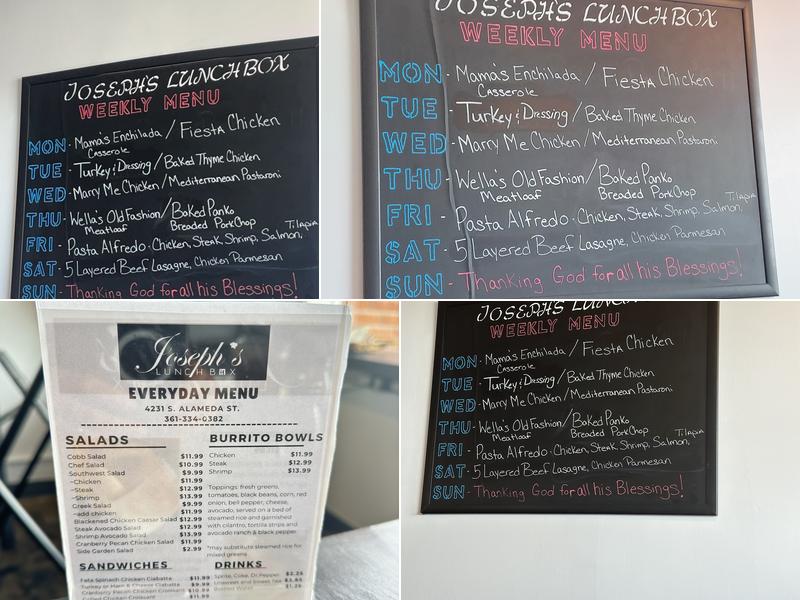 JOSEPH'S LUNCHBOX
WEEKLY MENU
MON - Mama's Enchilada / Fiesta Chicken
Casserole
TUE - Turkey & Dressing / Baked Thyme Chicken
WED - Marry Me Chicken / Mediterranean Pastaroni
THU - Wella's Old Fashion / Baked Panko
Meatloaf Breaded Pork Chop
Tilapia
FRI - Pasta Alfredo - Chicken, Steak, Shrimp, Salmon,
SAT - 5 Layered Beef Lasagne, Chicken Parmesan
SUN - Thanking God for all his Blessings!
JOSEPH'S LUNCHBOX
WEEKLY MENU
MON - Mama's Enchilada / Fiesta Chicken
Casserole
TUE - Turkey & Dressing / Baked Thyme Chicken
WED - Marry Me Chicken / Mediterranean Pastaroni
THU - Wella's Old Fashion / Baked Panko
Meatloaf Breaded Pork Chop
Tilapia
FRI - Pasta Alfredo - Chicken, Steak, Shrimp, Salmon,
SAT - 5 Layered Beef Lasagne, Chicken Parmesan
SUN - Thanking God for all his Blessings!
Joseph's
LUNCH BOX
EVERYDAY MENU
4231 S. ALAMEDA ST.
361-334-0382
SALADS
Cobb Salad $11.99
Chef Salad $10.99
Southwest Salad $9.99
~Chicken $11.99
~Steak $12.99
~Shrimp $13.99
Greek Salad $9.99
~add chicken $11.99
Blackened Chicken Caesar Salad $12.99
Steak Avocado Salad $12.99
Shrimp Avocado Salad $13.99
Cranberry Pecan Chicken Salad $11.99
Side Garden Salad $2.99
SANDWICHES
Feta Spinach Chicken Ciabatta $11.99
Turkey or Ham & Cheese Ciabatta $9.99
Cranberry Pecan Chicken Croissant $10.99
Grilled Chicken Croissant $11.99
BURRITO BOWLS
Chicken $11.99
Steak $12.99
Shrimp $13.99
Toppings: fresh greens,
tomatoes, black beans, corn, red
onion, bell pepper, cheese,
avocado, served on a bed of
steamed rice and garnished
with cilantro, tortilla strips and
avocado ranch & black pepper.
*may substitute steamed rice for
mixed greens
DRINKS
Sprite, Coke, Dr.Pepper $2.25
Unsweet and Sweet Tea
Bottled Water $1.25
JOSEPH'S
WEEKLY MENU
MON - Mama's Enchilada / Fiesta Chicken
Casserole
TUE - Turkey & Dressing / Baked Thyme Chicken
WED - Marry Me Chicken / Mediterranean Pastaroni
THU - Wella's Old Fashion / Baked Panko
Meatloaf Breaded Pork Chop
Tilapia
FRI - Pasta Alfredo - Chicken, Steak, Shrimp, Salmon,
SAT - 5 Layered Beef Lasagne, Chicken Parmesan
SUN - Thanking God for all his Blessings!